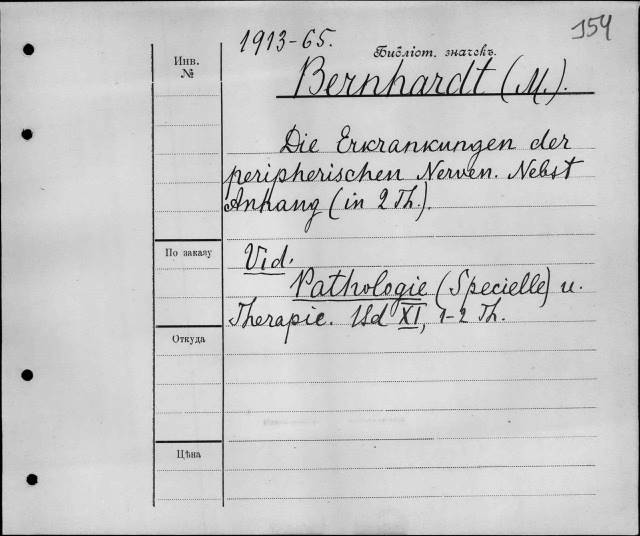 154
1913-65.
Библіот. значекъ.
Инв.
№
Bernhardt (M.).
Die Erkrankungen der
peripherischen Nerven. Nebst
Anhang (in 2 Th.).
По заказу
Vid.
Pathologie (Specielle) u.
Therapie. Bd XI, 1-2 Th.
Откуда
Цѣна